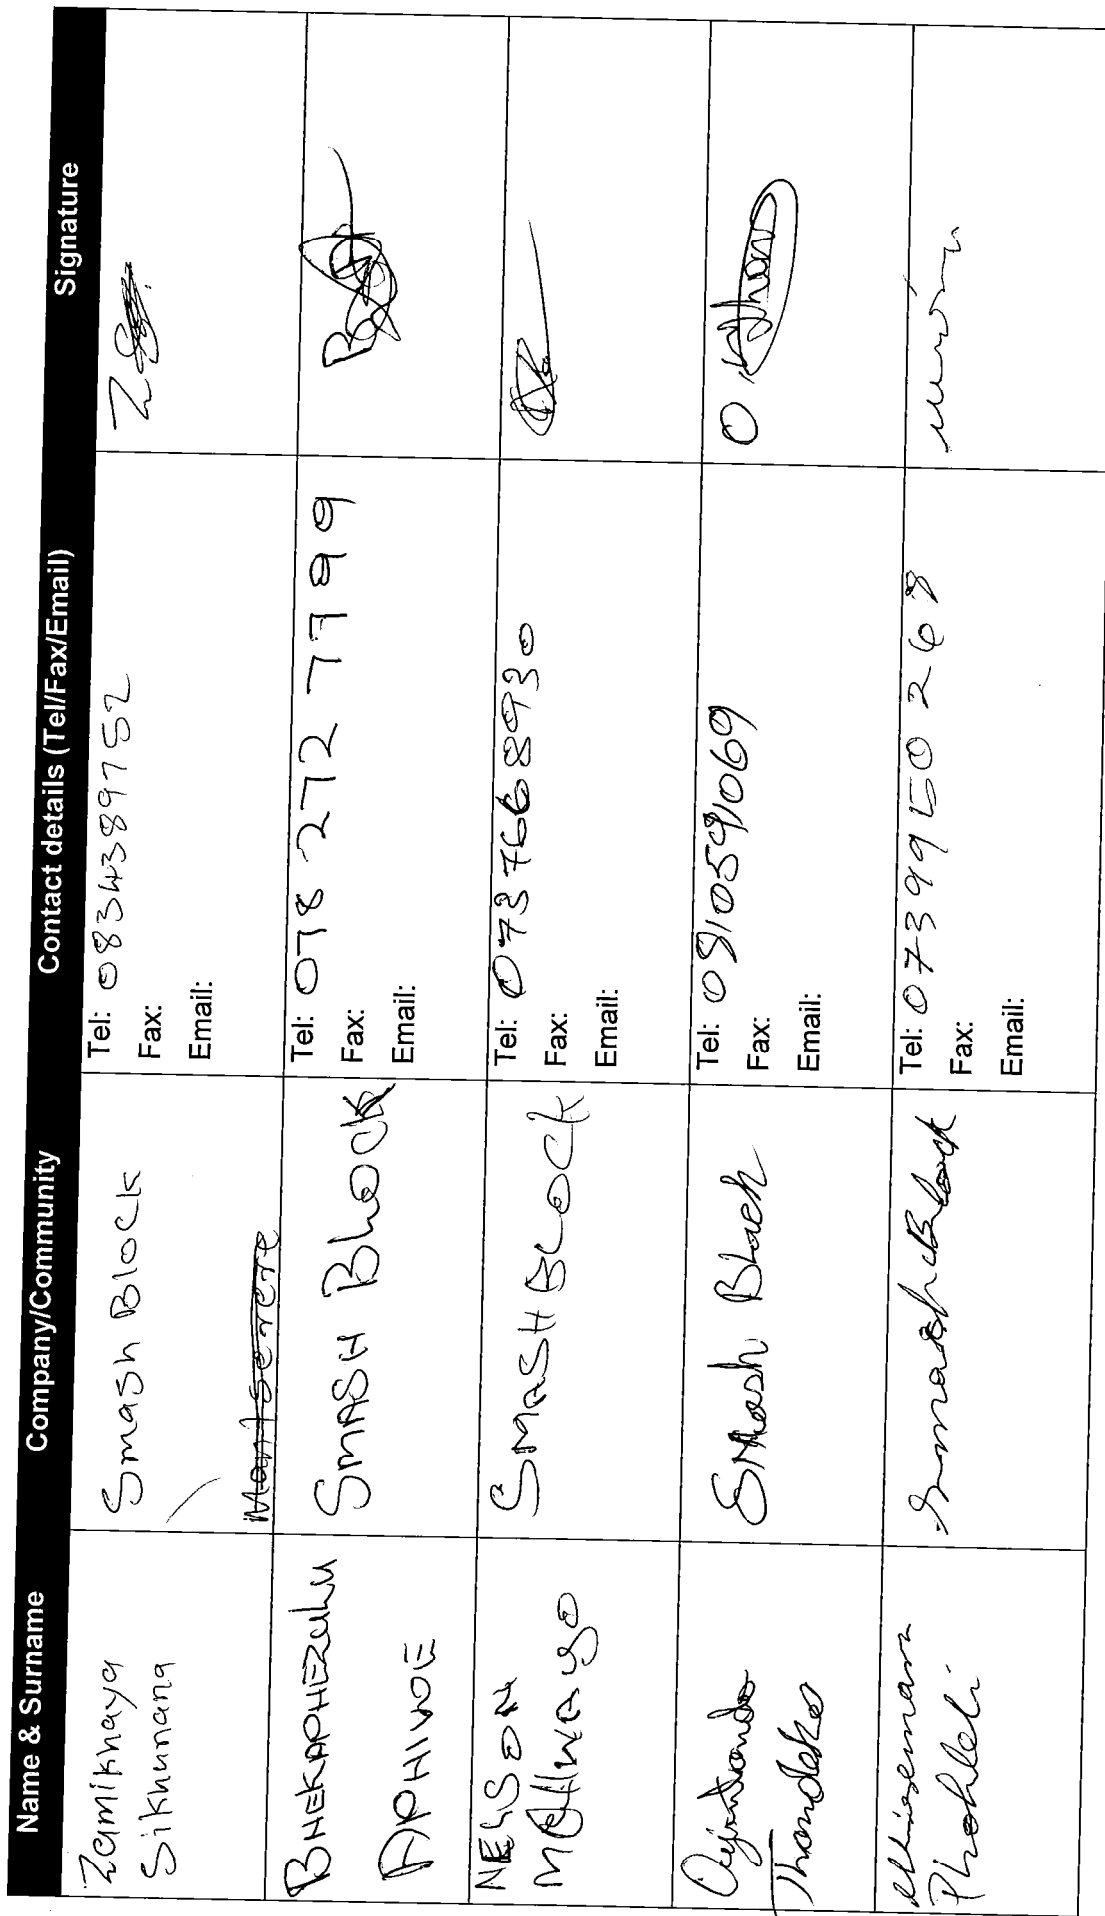 Name & Surname Company/Community Contact details (Tel/Fax/Email) Signature
Zamikhaya
Sikhunana
Smash Block
Mantserere
Tel: 0834389752
Fax:
Email:
BHEKAPHEZulu
APHIWE
SMASH BLOCK
Tel: 078 272 7799
Fax:
Email:
NELSON
SMASH BLOCK
Tel: 0737668930
Fax:
Email:
Thandeka
Smash Block
Tel: 0810591069
Fax:
Email:
Smash Block
Tel: 0739950268
Fax:
Email: